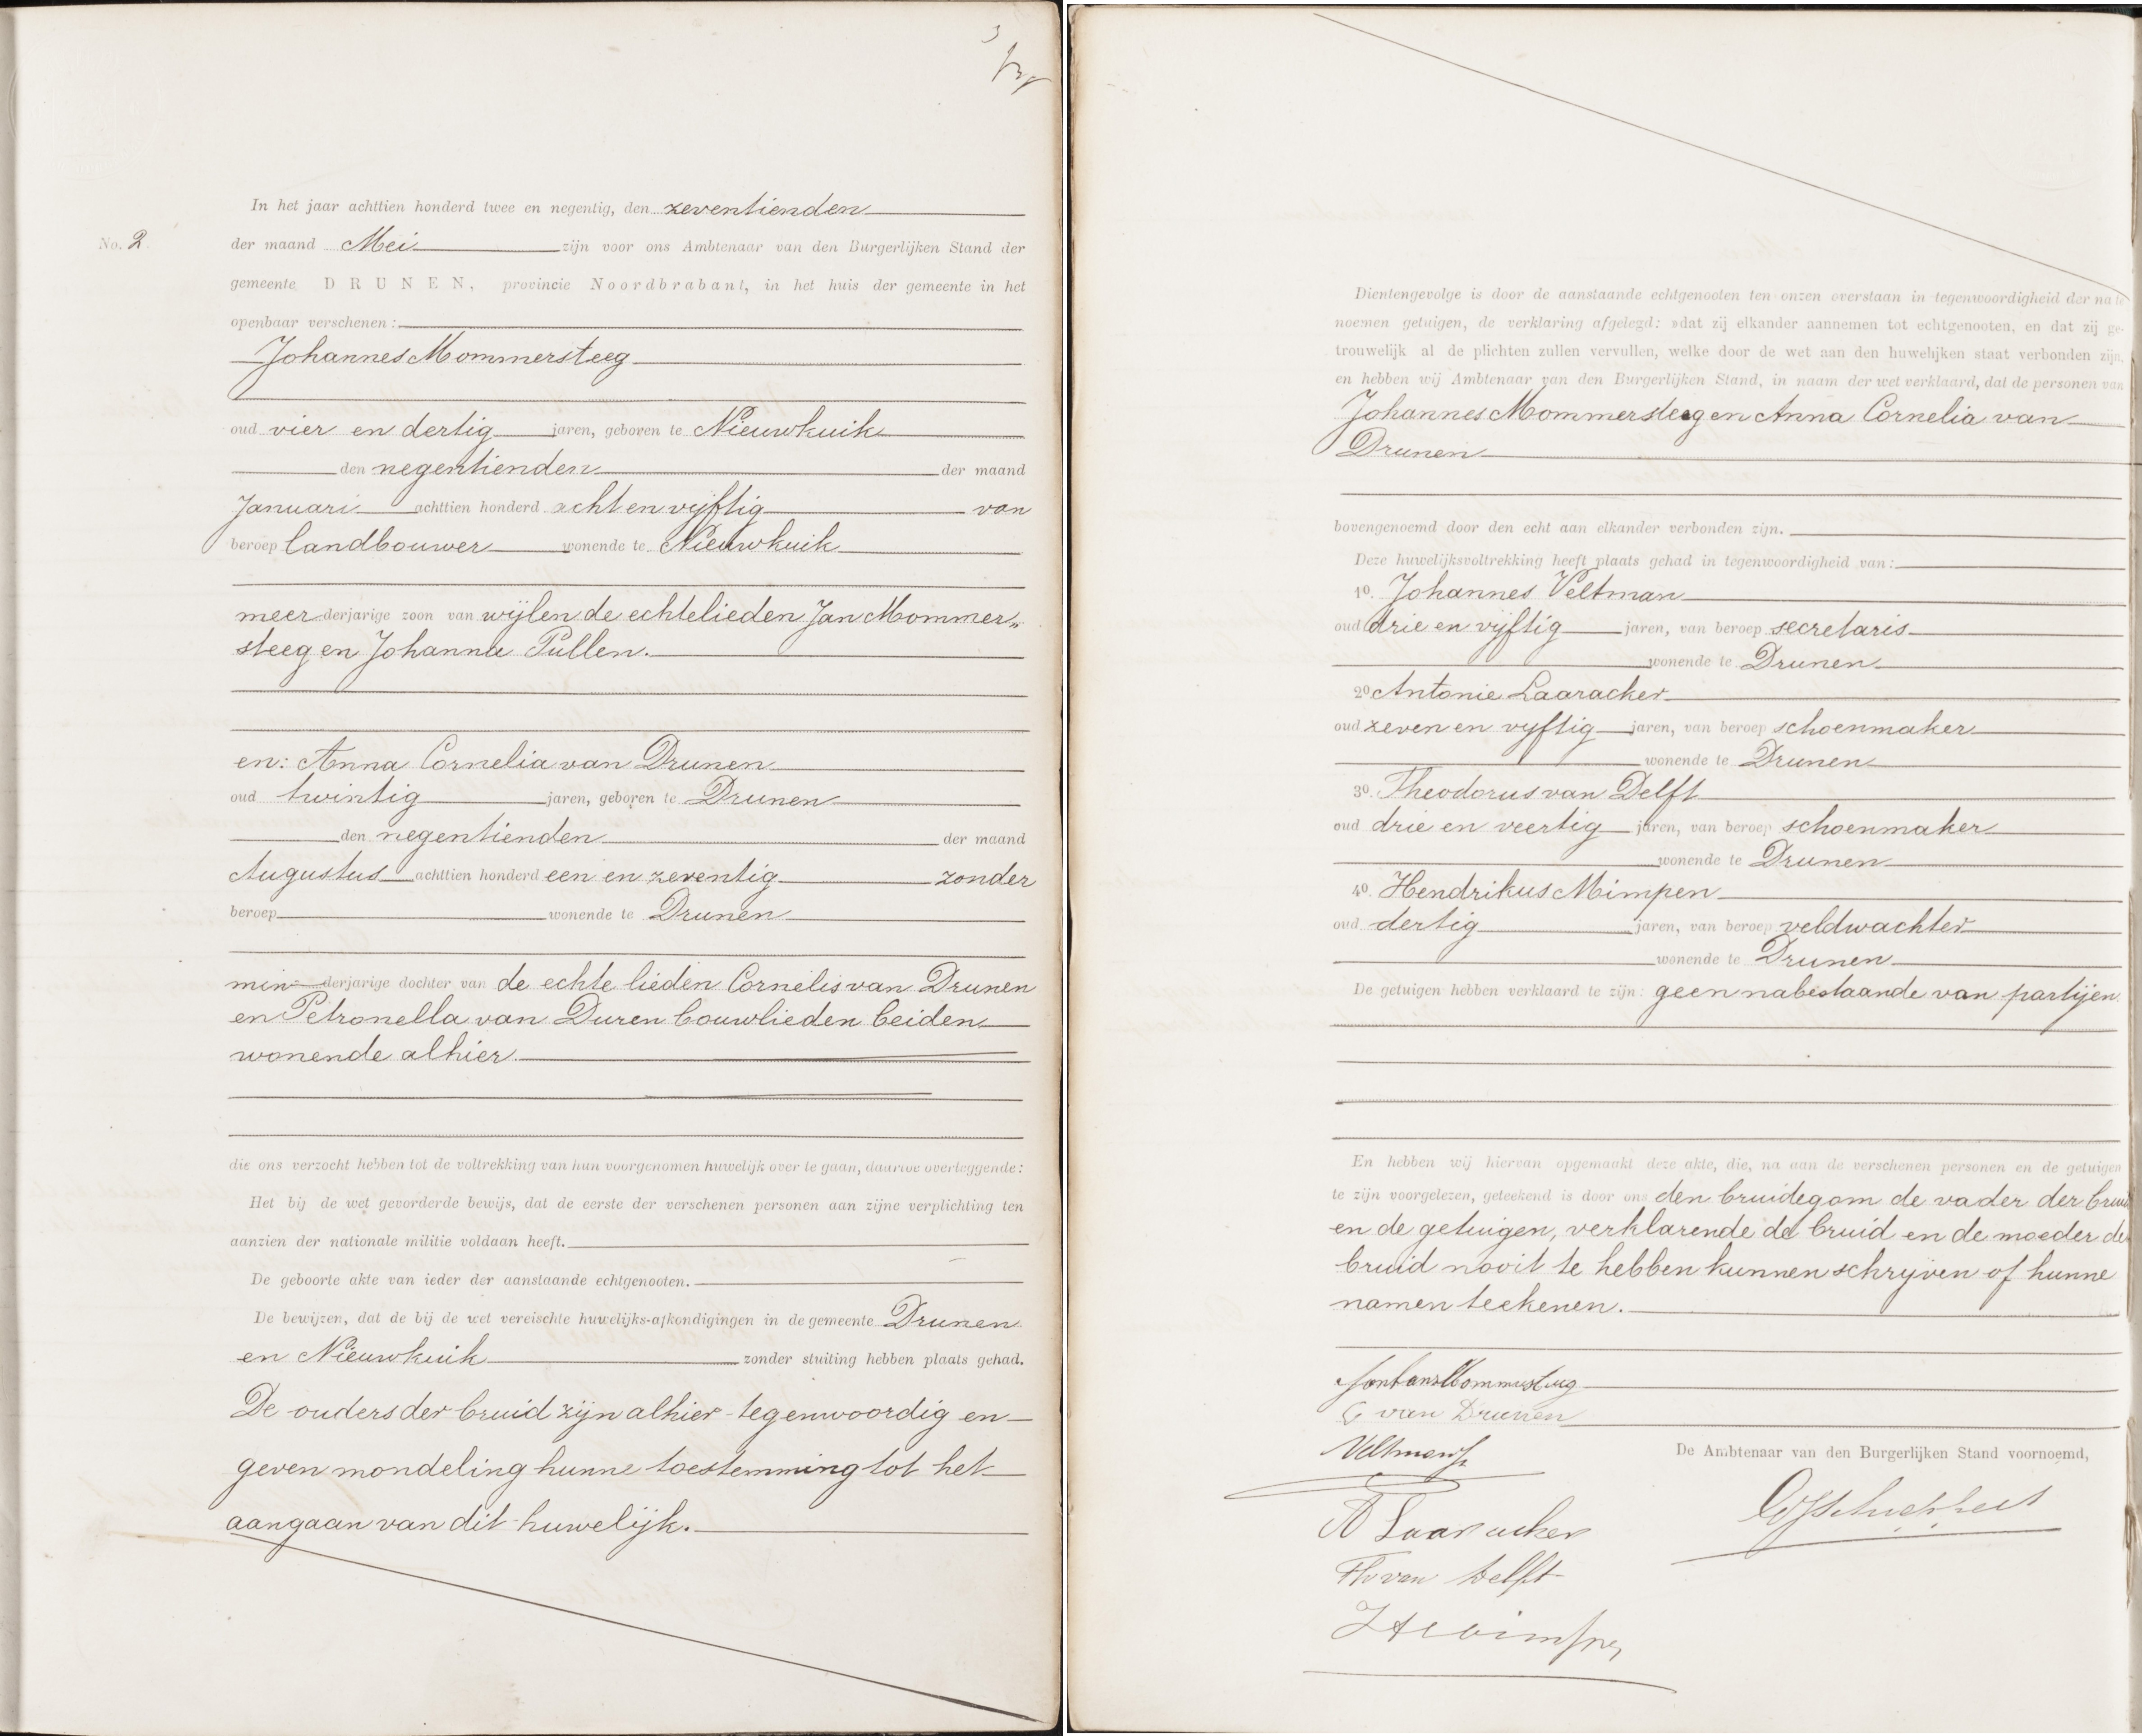 3
In het jaar achttien honderd twee en negentig, den zeventienden
No. 2. der maand Mei zijn voor ons Ambtenaar van den Burgerlijken Stand der
gemeente DRUNEN, provincie Noordbrabant, in het huis der gemeente in het
openbaar verschenen:
Johannes Mommersteeg
oud vier en dertig jaren, geboren te Nieuwkuik
den negentienden der maand
Januari achttien honderd acht en vijftig van
beroep landbouwer wonende te Nieuwkuik
meerderjarige zoon van wijlen de echtelieden Jan Mommer„
steeg en Johanna Pullen.
en: Anna Cornelia van Drunen
oud twintig jaren, geboren te Drunen
den negentienden der maand
Augustus achttien honderd een en zeventig zonder
beroep wonende te Drunen
minderjarige dochter van de echte lieden Cornelis van Drunen
en Petronella van Duren bouwlieden beiden
wonende alhier.
die ons verzocht hebben tot de voltrekking van hun voorgenomen huwelijk over te gaan, daartoe overleggende:
Het bij de wet gevorderde bewijs, dat de eerste der verschenen personen aan zijne verplichting ten
aanzien der nationale militie voldaan heeft.
De geboorte akte van ieder der aanstaande echtgenooten.
De bewijzen, dat de bij de wet vereischte huwelijks-afkondigingen in de gemeente Drunen
en Nieuwkuik zonder stuiting hebben plaats gehad.
De ouders der bruid zijn alhier tegenwoordig en
geven mondeling hunne toestemming tot het
aangaan van dit huwelijk.
Dientengevolge is door de aanstaande echtgenooten ten onzen overstaan in tegenwoordigheid der na te
noemen getuigen, de verklaring afgelegd: »dat zij elkander aannemen tot echtgenooten, en dat zij ge-
trouwelijk al de plichten zullen vervullen, welke door de wet aan den huwelijken staat verbonden zijn,
en hebben wij Ambtenaar van den Burgerlijken Stand, in naam der wet verklaard, dat de personen van
Johannes Mommersteeg en Anna Cornelia van
Drunen
bovengenoemd door den echt aan elkander verbonden zijn.
Deze huwelijksvoltrekking heeft plaats gehad in tegenwoordigheid van:
1o. Johannes Veltman
oud drie en vijftig jaren, van beroep secretaris
wonende te Drunen
2o Antonie Laaracker
oud zeven en vyftig jaren, van beroep schoenmaker
wonende te Drunen
3o. Theodorus van Delft
oud drie en veertig jaren, van beroep schoenmaker
wonende te Drunen
4o. Hendrikus Mimpen
oud dertig jaren, van beroep veldwachter
wonende te Drunen
De getuigen hebben verklaard te zijn: geen nabestaande van partijen
En hebben wij hiervan opgemaakt deze akte, die, na aan de verschenen personen en de getuigen
te zijn voorgelezen, geteekend is door ons den bruidegom de vader der bruid
en de getuigen, verklarende de bruid en de moeder der
bruid nooit te hebben kunnen schryven of hunne
namen teekenen.
C van Drunen
Veltman
De Ambtenaar van den Burgerlijken Stand voornoemd,
A Laaracker
Th van Delft